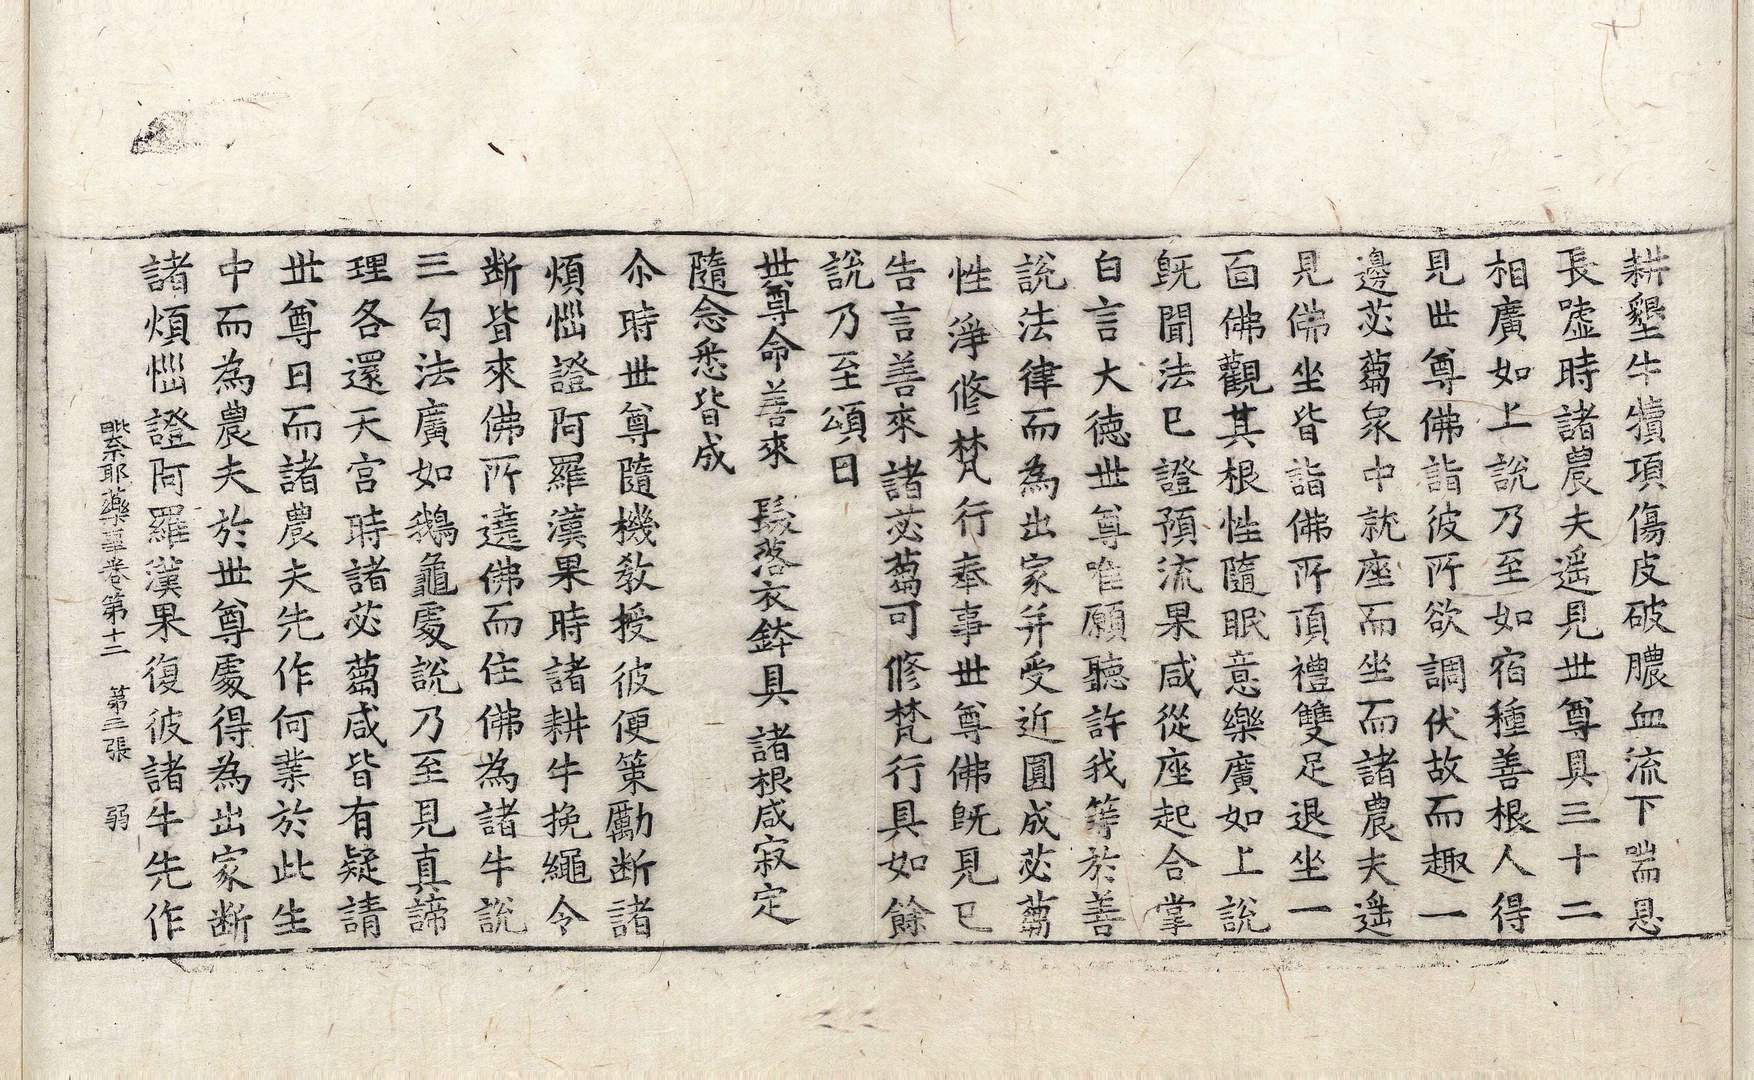 耕墾牛犢項傷皮破膿血流下喘息
長噓時諸農夫遥見世尊具三十二
相廣如上說乃至如宿種善根人得
見世尊佛詣彼所欲調伏故而趣一
邊苾蒭衆中就座而坐而諸農夫遥
見佛坐皆詣佛所頂禮雙足退坐一
面佛觀其根性隨眠意樂廣如上說
旣聞法已證預流果咸從座起合掌
白言大德世尊唯願聽許我等於善
說法律而為出家并受近圓成苾蒭
性淨修梵行奉事世尊佛旣見已
告言善來諸苾蒭可修梵行具如餘
說乃至頌曰
世尊命善來　髮落衣鉢具　諸根咸寂定
隨念悉皆成
尒時世尊隨機教授彼便策勵断諸
煩惱證阿羅漢果時諸耕牛挽繩令
断皆來佛所遶佛而住佛為諸牛說
三句法廣如鵝龜處說乃至見真諦
理各還天宮時諸苾蒭咸皆有疑請
世尊曰而諸農夫先作何業於此生
中而為農夫於世尊處得為出家断
諸煩惱證阿羅漢果復彼諸牛先作
毗奈耶藥事卷第十二　第三張　弱